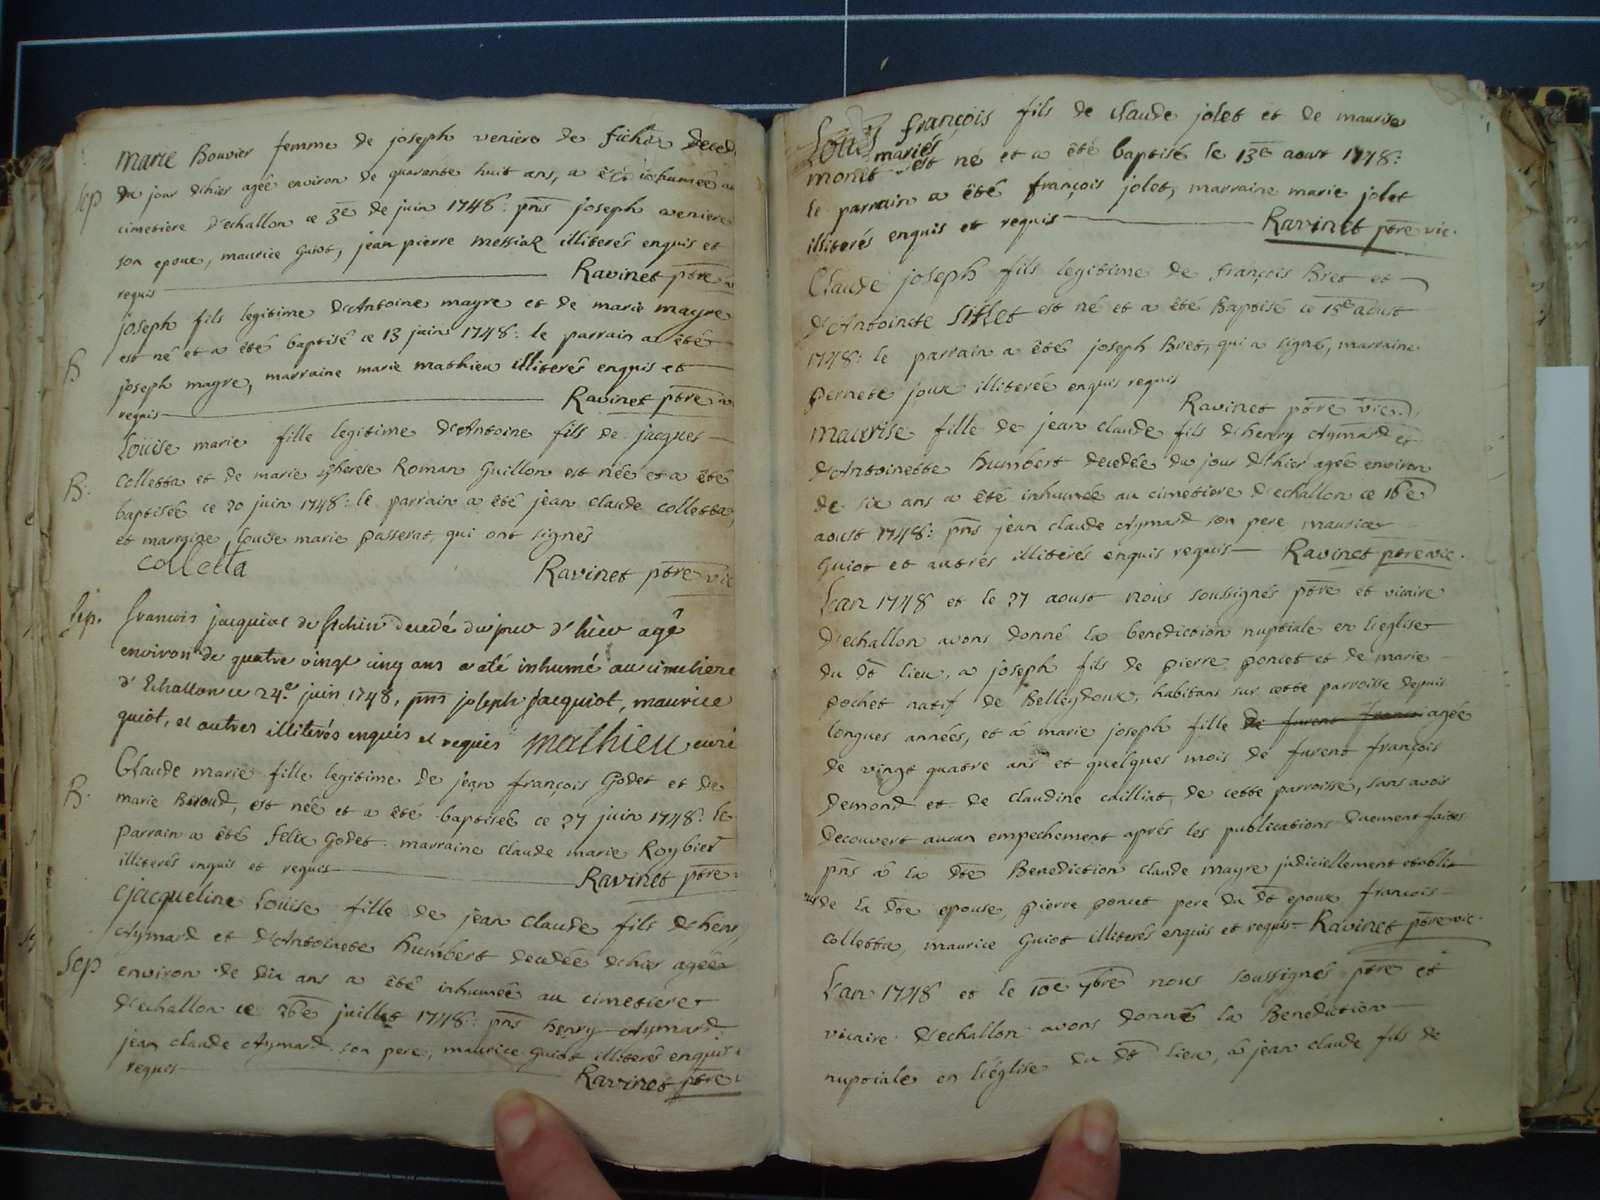 marie Bouvier femme de joseph veniere de fichin deced
Sep
du jour d'hier agée environ de quarante huit ans, a été inhumée au
cimetiere d'echallon ce 3e de juin 1748: pns joseph veniere
son epoux, maurice Guiot, jean pierre messiaz illiterés enquis et
requis
Ravinet ptre
joseph fils legitime d'Antoine mayre et de marie mayre
est né et a été baptisé ce 13 juin 1748: le parrain a été
B
joseph mayre, marraine marie mathieu illiterés enquis et
requis
Ravinet ptre
Louise marie fille legitime d'Antoine fils de jacques
B.
Colletta et de marie therese Roman Guillon est née et a été
baptisée ce 20 juin 1748: le parrain a été jean claude colletta,
et marraine louise marie passerat, qui ont signés
Colletta
Ravinet ptre vic
Sep.
francois jacquiot de fichin decedé du jour d'hier agé
environ de quatre vingt cinq ans a été inhumé au cimetiere
d'Echallon ce 24.e juin 1748, pns joseph jacquiot, maurice
guiot, et autres illiterés enquis et requis mathieu curé
Claude marie fille legitime de jean françois Godet et de
B.
marie Beroud, est née et a été baptisée ce 27 juin 1748: le
parrain a été felix Godet marraine claude marie Roybier
illiterés enquis et requis
Ravinet ptre
jacqueline Louise fille de jean claude fils d'henry
Aymard et d'Antoinete humbert decedée d'hier agée
Sep
environ de dix ans a été inhumée au cimetiere
d'echallon ce 26e juillet 1748: pns henry Aymard
jean claude Aymard son pere, maurice Guiot illiterés enquis
requis
Ravinet ptre
Louis françois fils de claude jolet et de maurise
mariés
monet est né et a été baptisé le 13e aout 1748:
le parrain a été françois jolet, marraine marie jolet
illiterés enquis et requis
Ravinet ptre vic.
Claude joseph fils legitime de françois Bret et
d'Antoinete Sillet est né et a été Baptisé ce 15e aoust
1748: le parrain a été joseph Bret, qui a signé, marraine
pernete joux illiterée enquis requis
Ravinet ptre vic.
maurise fille de jean claude fils d'henry Aymard et
d'Antoinette humbert decedée du jour d'hier agée environ
de six ans a été inhumée au cimetiere d'echallon ce 16e
aoust 1748: pns jean claude Aymard son pere maurice
Guiot et autres illiterés enquis requis Ravinet ptre vic.
L'an 1748 et le 27 aoust nous soussignés ptre et vicaire
d'echallon avons donné la benediction nuptiale en l'église
du dt lieu, a joseph fils de pierre poncet et de marie
pochet natif de Belleydoux, habitans sur cette parroisse depuis
longues années, et a marie joseph fille de furent franc agée
de vingt quatre ans et quelques mois de furent françois
demond et de claudine cailliat, de cette parroisse, sans avoir
decouvert aucun empechement aprés les publications duement faites
pns à la dte Benediction claude mayre judiciellement etabli
de la dte epouse, pierre poncet pere du dt epoux françois
collettas, maurice Guiot illiterés enquis et requis Ravinet ptre vic.
L'an 1748 et le 10e 7bre nous soussignés ptre et
vicaire d'echallon avons donné la Benediction
nuptiale en l'église du dt lieu, à jean claude fils de